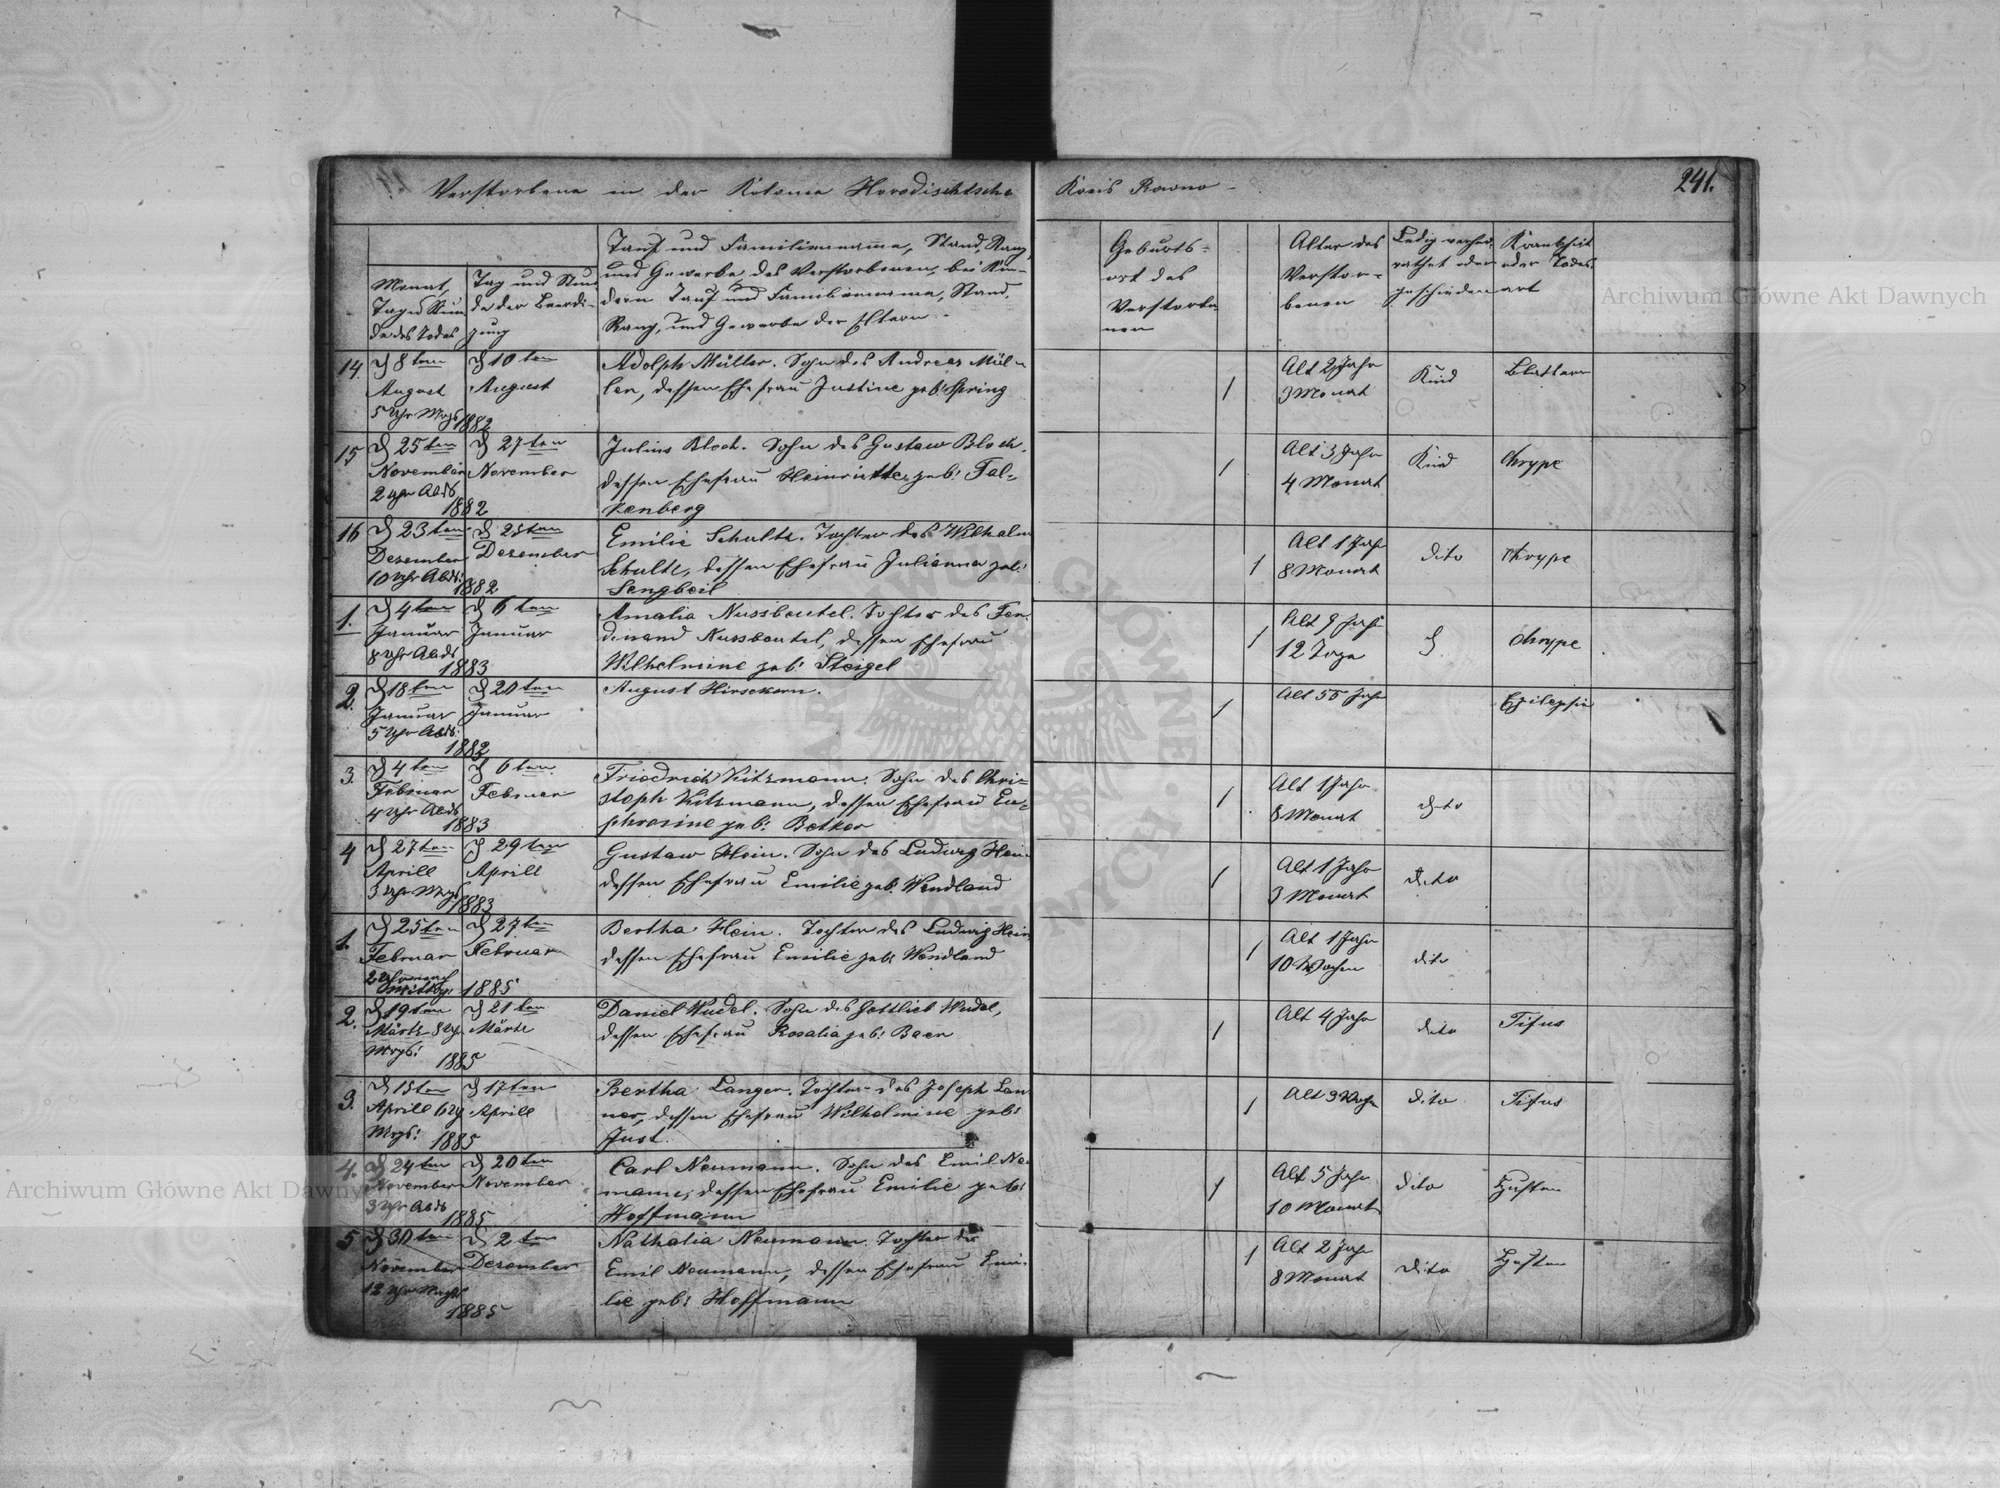 Verstorbene in der Kolonie Horodischtsche Kreis Rowno
241.
Monat,
Tag u Stun
de des Todes
Tag und Stun
de der Beerdi-
gung
Tauf und Familienname, Stand, Rang
und Gewerbe des Verstorbenen, bei Kin-
dern Tauf und Familienname, Stand,
Rang, und Gewerbe der Eltern.
Geburts-
ort des
Verstorbe-
nen
Alter des
Verstor-
benen
Ledig verhei-
rathet oder
geschieden
Krankheit
oder Todes-
art
14. d 8ten
August
5 Uhr Mrgs
d 10ten
August
1882
Adolph Müller. Sohn des Andreas Mül-
ler, dessen Ehefrau Justine geb: Spring
1
Alt 2 Jahr
3 Monat
Kind
Blattern
15 d 25ten
November
2 Uhr Abds
d 27ten
November
1882
Julius Bloch. Sohn des Gustaw Bloch.
dessen Ehefrau Heinriette geb: Fal-
kenberg
1
Alt 3 Jahr
4 Monat
Kind
Chrype
16 d 23ten
Dezember
10 Uhr Abds:
d 25ten
Dezember
1882
Emilie Schultz. Tochter des Wilhelm
Schultz, dessen Ehefrau Julianna geb:
Sengbeil
1
Alt 1 Jahr
8 Monat
dito
Chrype
1. d 4ten
Januar
8 Uhr Abds
d 6ten
Januar
1883
Amalia Nussbeutel. Tochter des Fer
dinand Nussbeutel, dessen Ehefrau
Wilhelmine geb: Steigel
1
Alt 9 Jahr
12 Tage
d.
Chrype
2. d 18ten
Januar
5 Uhr Abds:
d 20ten
Januar
1882
August Hirsekorn.
1
Alt 55 Jahr
Epilepsie
3. d 4ten
Februar
4 Uhr Abds
d 6ten
Februar
1883
Friedrich Kitzmann. Sohn des Chri-
stoph Kitzmann, dessen Ehefrau Eu-
phrosine geb: Betker
1
Alt 1 Jahr
8 Monat
dito
4 d 27ten
Aprill
3 Uhr Mrgs
d 29ten
Aprill
1883
Gustaw Hein. Sohn des Ludwig Hein
dessen Ehefrau Emilie geb. Wendland
1
Alt 1 Jahr
3 Monat
dito
1. d 25ten
Februar
2 Uhr nach
Mittag.
d 27ten
Februar
1885
Bertha Hein. Tochter des Ludwig Hein
dessen Ehefrau Emilie geb: Wendland
1
Alt 1 Jahr
10 Wochen
dito
2. d 19ten
Märtz 8 Uhr
Mrgs:
d 21ten
Märtz
1885
Daniel Wudel. Sohn des Gottlieb Wudel,
dessen Ehefrau Rosalia geb: Baer
1
Alt 4 Jahr
dito
Tifus
3. d 15ten
Aprill 6 Uhr
Mrgs:
d 17ten
Aprill
1885
Bertha Langer. Tochter des Joseph Lan
ner, dessen Ehefrau Wilhelmine geb:
Just.
1
Alt 3 Woche
dito
Tifus
4. d 24ten
November
3 Uhr Abds
d 20ten
November
1885
Carl Neumann. Sohn des Emil Ne
mann, dessen Ehefrau Emilie geb:
Hoffmann
1
Alt 5 Jahr
10 Monat
dito
Husten
5 d 30ten
November
12 Uhr
d 2ten
Dezember
1885
Nathalia Neumann. Tochter des
Emil Neumann, dessen Ehefrau Emi-
lie geb: Hoffmann
1
Alt 2 Jahr
8 Monat
dito
Husten
Archiwum Główne Akt Dawnych
Archiwum Główne Akt Dawnych